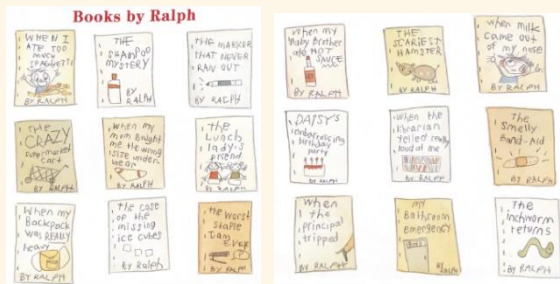 Books by Ralph
WHEN I
ATE TOO
MUCH
SPAGHETTI
BY RALPH
THE
SHAMPOO
MYSTERY
BY
RALPH
THE MARKER
THAT NEVER
RAN OUT
BY RALPH
THE
CRAZY
supermarket
cart
BY RALPH
When my
mom bought
me the wrong
size under
wear
BY RALPH
the
Lunch
lady's
friend
BY RALPH
When my
Backpack
was REALLY
heavy
BY RALPH
the case
of the
missing
ice cubes
By Ralph
the worst
staple
Jam
EVER
BY RALPH
When my
Baby Brother
ate HOT
SAUCE
BY RALPH
THE
SCARIEST
HAMSTER
BY RALPH
when milk
came out
of my nose
BY RALPH
DAISY'S
embarrassing
birthday
party
BY RALPH
when the
librarian
yelled really
loud at me
BY RALPH
The
Smelly
Band-Aid
BY RALPH
When
the
principal
tripped
BY RALPH
my
Bathroom
emergency
BY
RALPH
The
inchworm
returns
BY RALPH